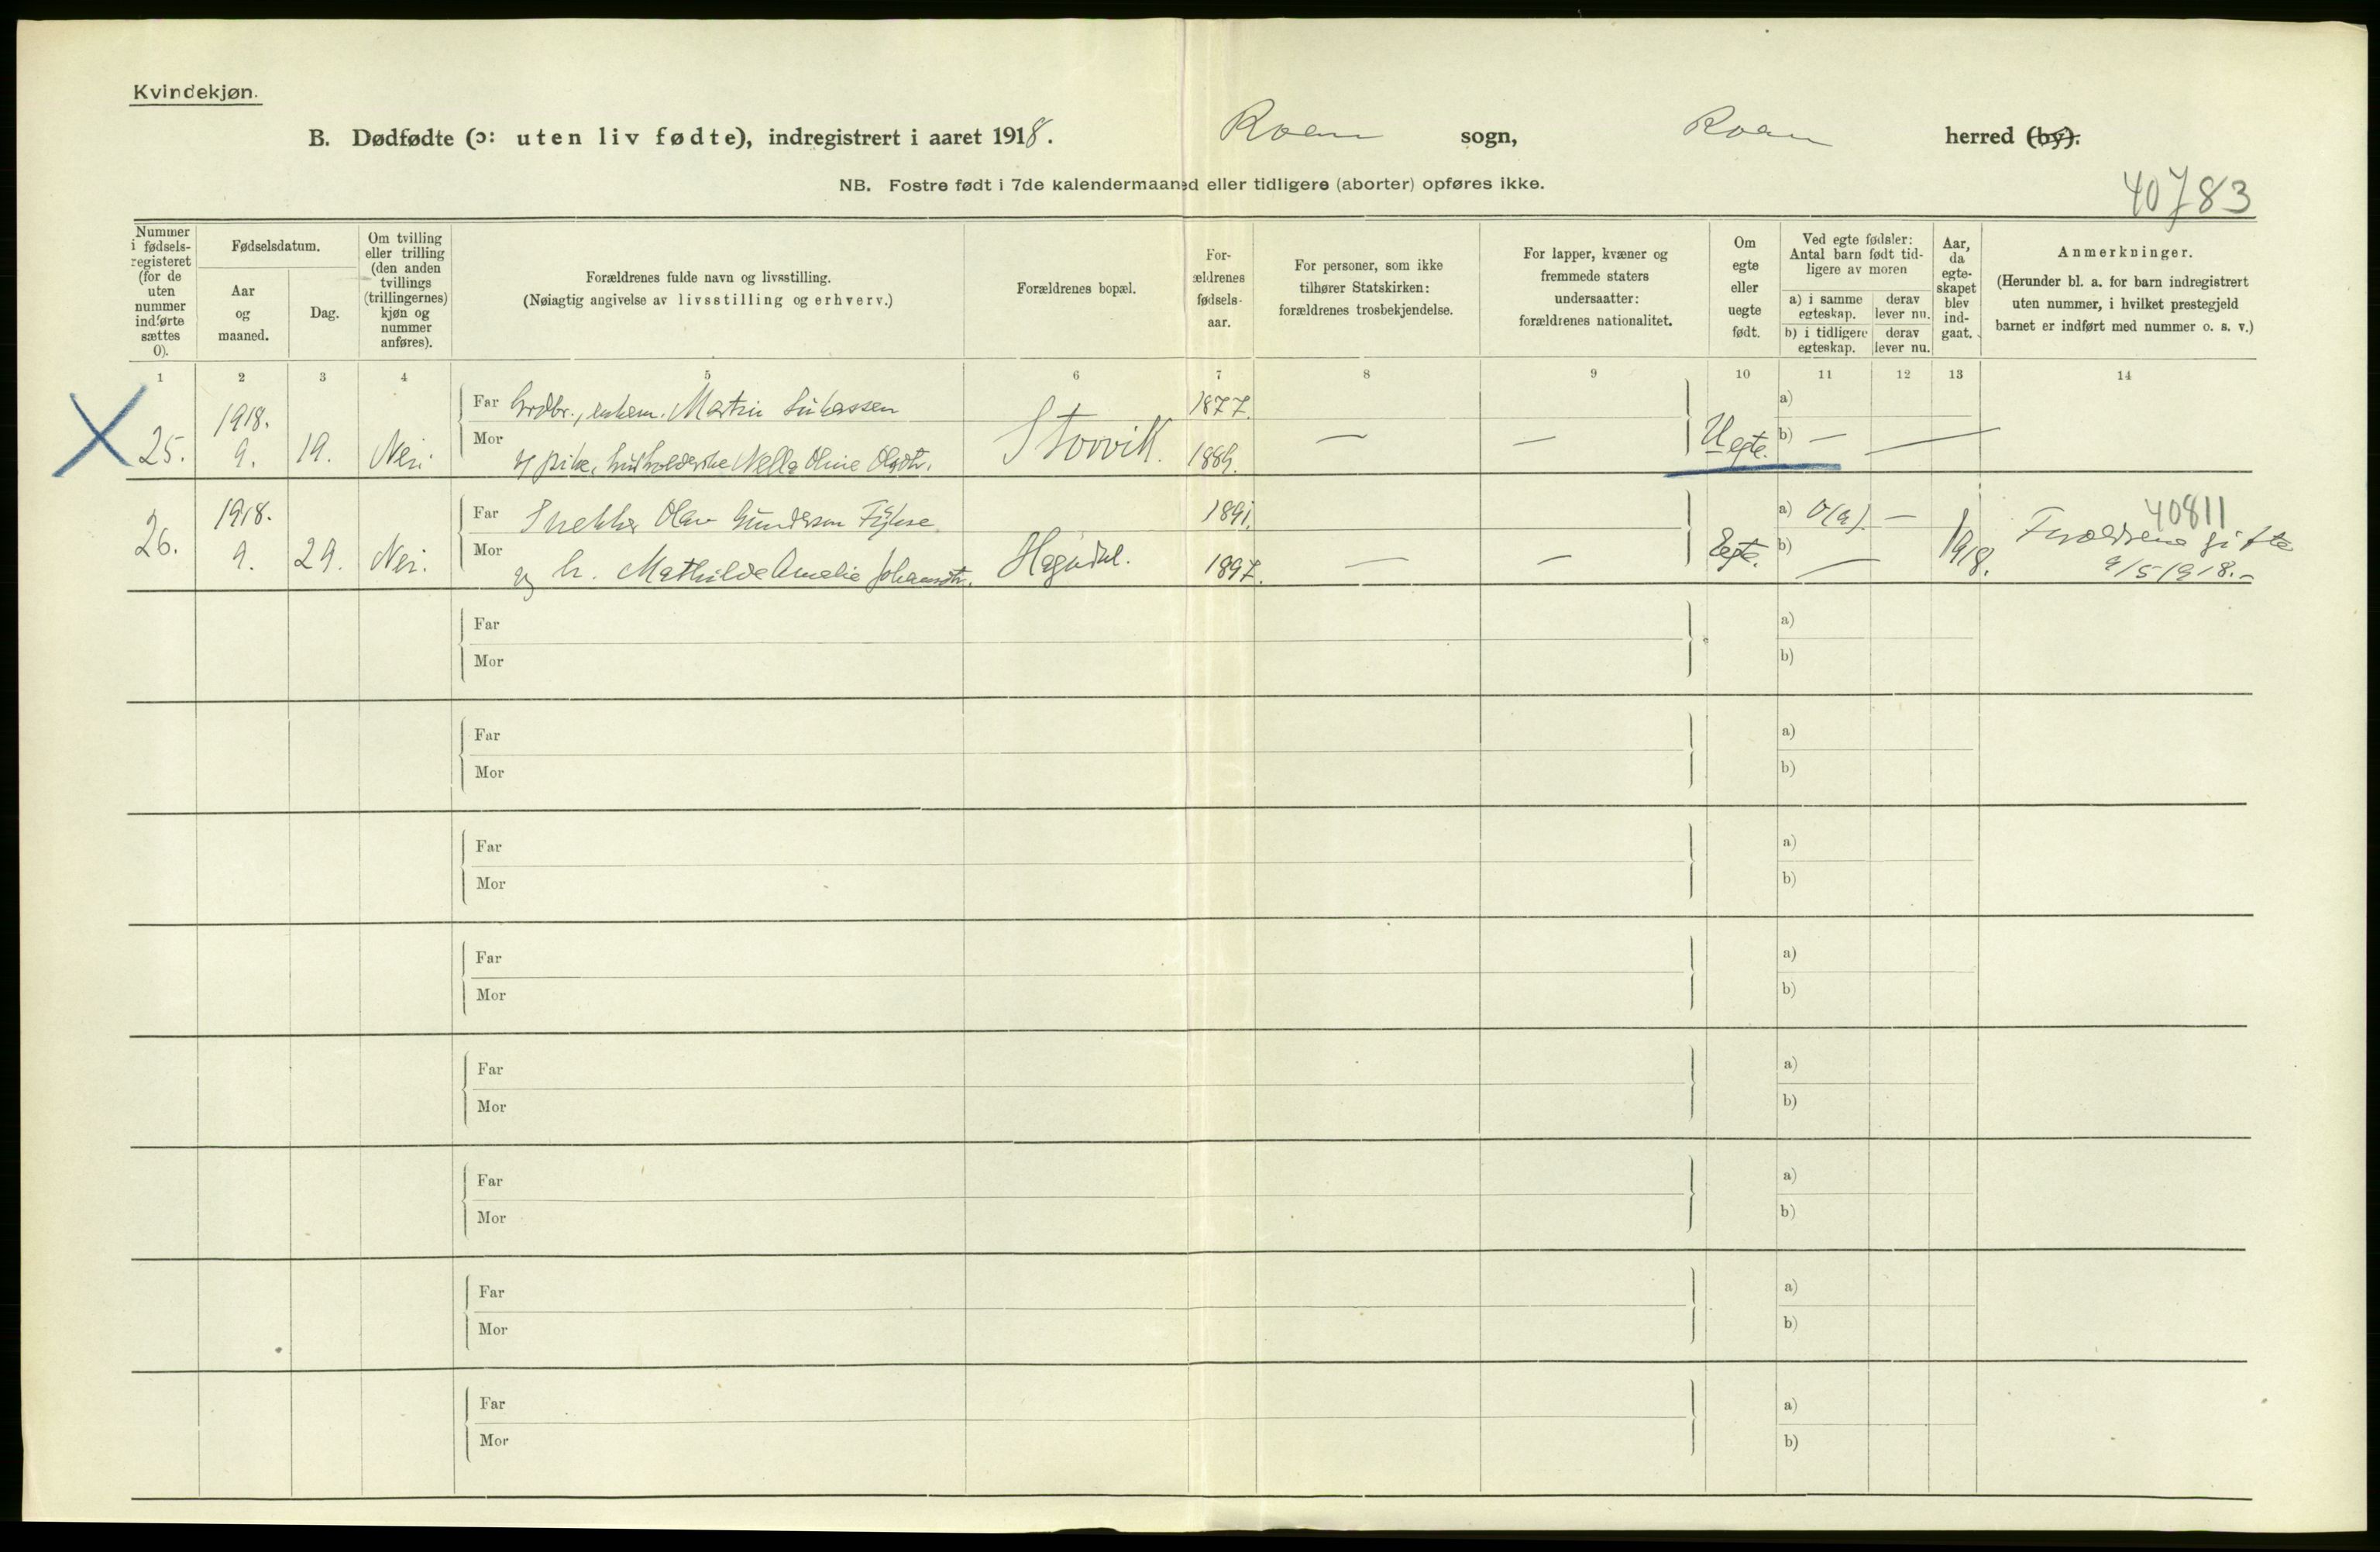 Kvindekjøn.
B. Dødfødte (ɔ: uten liv fødte), indregistrert i aaret 1918. Roan sogn, Roan herred (by).
NB. Fostre født i 7de kalendermaaned eller tidligere (aborter) opføres ikke.
40783
Nummer i fødselsregisteret (for de uten nummer indførte sættes 0).
Fødselsdatum.
Aar og maaned.
Dag.
Om tvilling eller trilling (den anden tvillings (trillingernes) kjøn og nummer anføres).
Forældrenes fulde navn og livsstilling.
(Nøiagtig angivelse av livsstilling og erhverv.)
Forældrenes bopæl.
Forældrenes fødselsaar.
For personer, som ikke tilhører Statskirken: forældrenes trosbekjendelse.
For lapper, kvæner og fremmede staters undersaatter: forældrenes nationalitet.
Om egte eller uegte født.
Ved egte fødsler: Antal barn født tidligere av moren
a) i samme egteskap. derav lever nu.
b) i tidligere egteskap. derav lever nu.
Aar, da egteskapet blev indgaat.
Anmerkninger.
(Herunder bl. a. for barn indregistrert uten nummer, i hvilket prestegjeld barnet er indført med nummer o. s. v.)
1 2 3 4 5 6 7 8 9 10 11 12 13 14
25. 1918. 9. 19. Nei.
Far Grdbr., enkem. Martin Lukassen 1877.
Mor og pike, husholderske Nella Oline Olsdtr. Storvik. 1889. — — Uegte.
a)
b) — —
26. 1918. 9. 29. Nei.
Far Snekker Olav Gunderson 1891.
Mor og h. Mathilde Amelie Johansdtr. 1897. — — Egte.
a) 0(a). —
b) —
1918.
40811
Forældrene gifte
9/5 1918. –
Far
Mor
a)
b)
Far
Mor
a)
b)
Far
Mor
a)
b)
Far
Mor
a)
b)
Far
Mor
a)
b)
Far
Mor
a)
b)
Far
Mor
a)
b)
Far
Mor
a)
b)